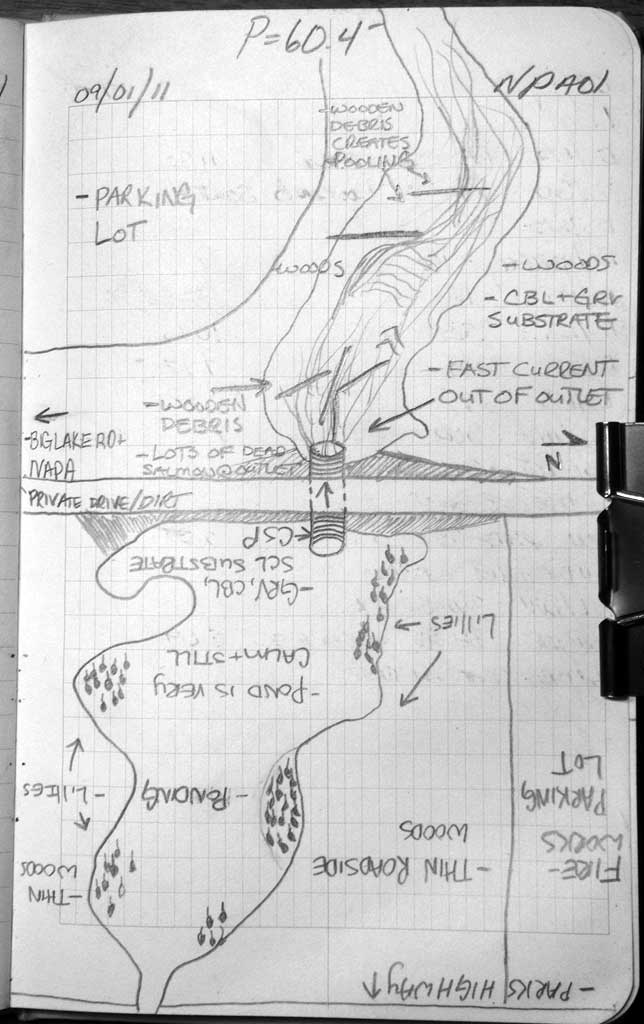 P=60.4
09/01/11
NPA01
-WOODEN
DEBRIS
CREATES
POOLING
-PARKING
LOT
-WOODS
-WOODS
-CBL+GRV
SUBSTRATE
-FAST CURRENT
OUT OF OUTLET
-WOODEN
DEBRIS
-LOTS OF DEAD
SALMON@OUTLET
-BIG LAKE RD+
NAPA
N
PRIVATE DRIVE/DIRT
CSP
-GRV, CBL,
SCL SUBSTRATE
LILLIES
-POND IS VERY
CALM+STILL
-PONDING
-LILLIES
-THIN
WOODS
-THIN ROADSIDE
WOODS
FIRE-
WORKS
PARKING
LOT
-PARKS HIGHWAY